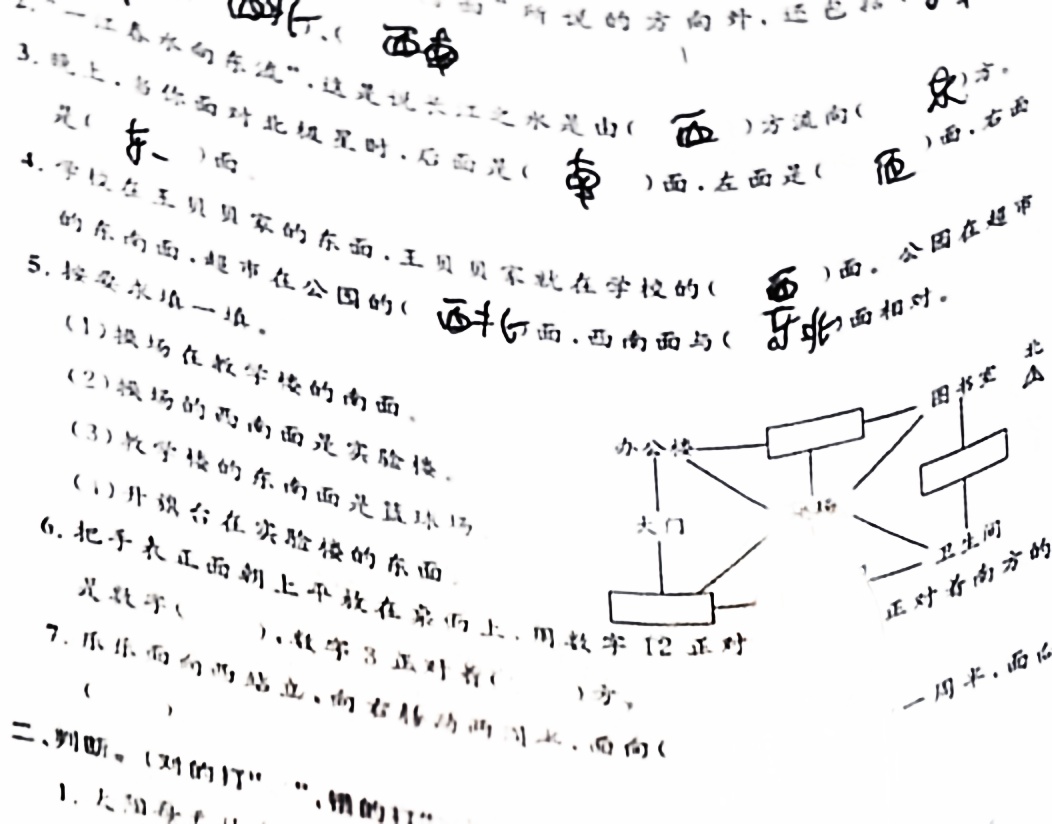 所说的方向外,还包括
西南
2."一江春水向东流",这是说长江之水是由( 西 )方流向( 东 )方。
3.晚上,当你面对北极星时,后面是( 南 )面,左面是( 西 )面,右面
是( 东 )面。
4.学校在王贝贝家的东面,王贝贝家就在学校的( 西 )面。公园在超市
的东南面,超市在公园的( 西北 )面,西南面与( 东北 )面相对。
5.按要求填一填。
(1)操场在教学楼的南面。
(2)操场的西南面是实验楼。
(3)教学楼的东南面是篮球场
(4)升旗台在实验楼的东面
北
图书室
办公楼
场
大门
卫生间
6.把手表正面朝上平放在桌面上,用数字12正对
正对着南方的
是数字( ),数字3正对着( )方。
7.乐乐面向西站立,向右转动两周半,面向(
一周半,面向
( )
二、判断。(对的打" ",错的打"
1.太阳